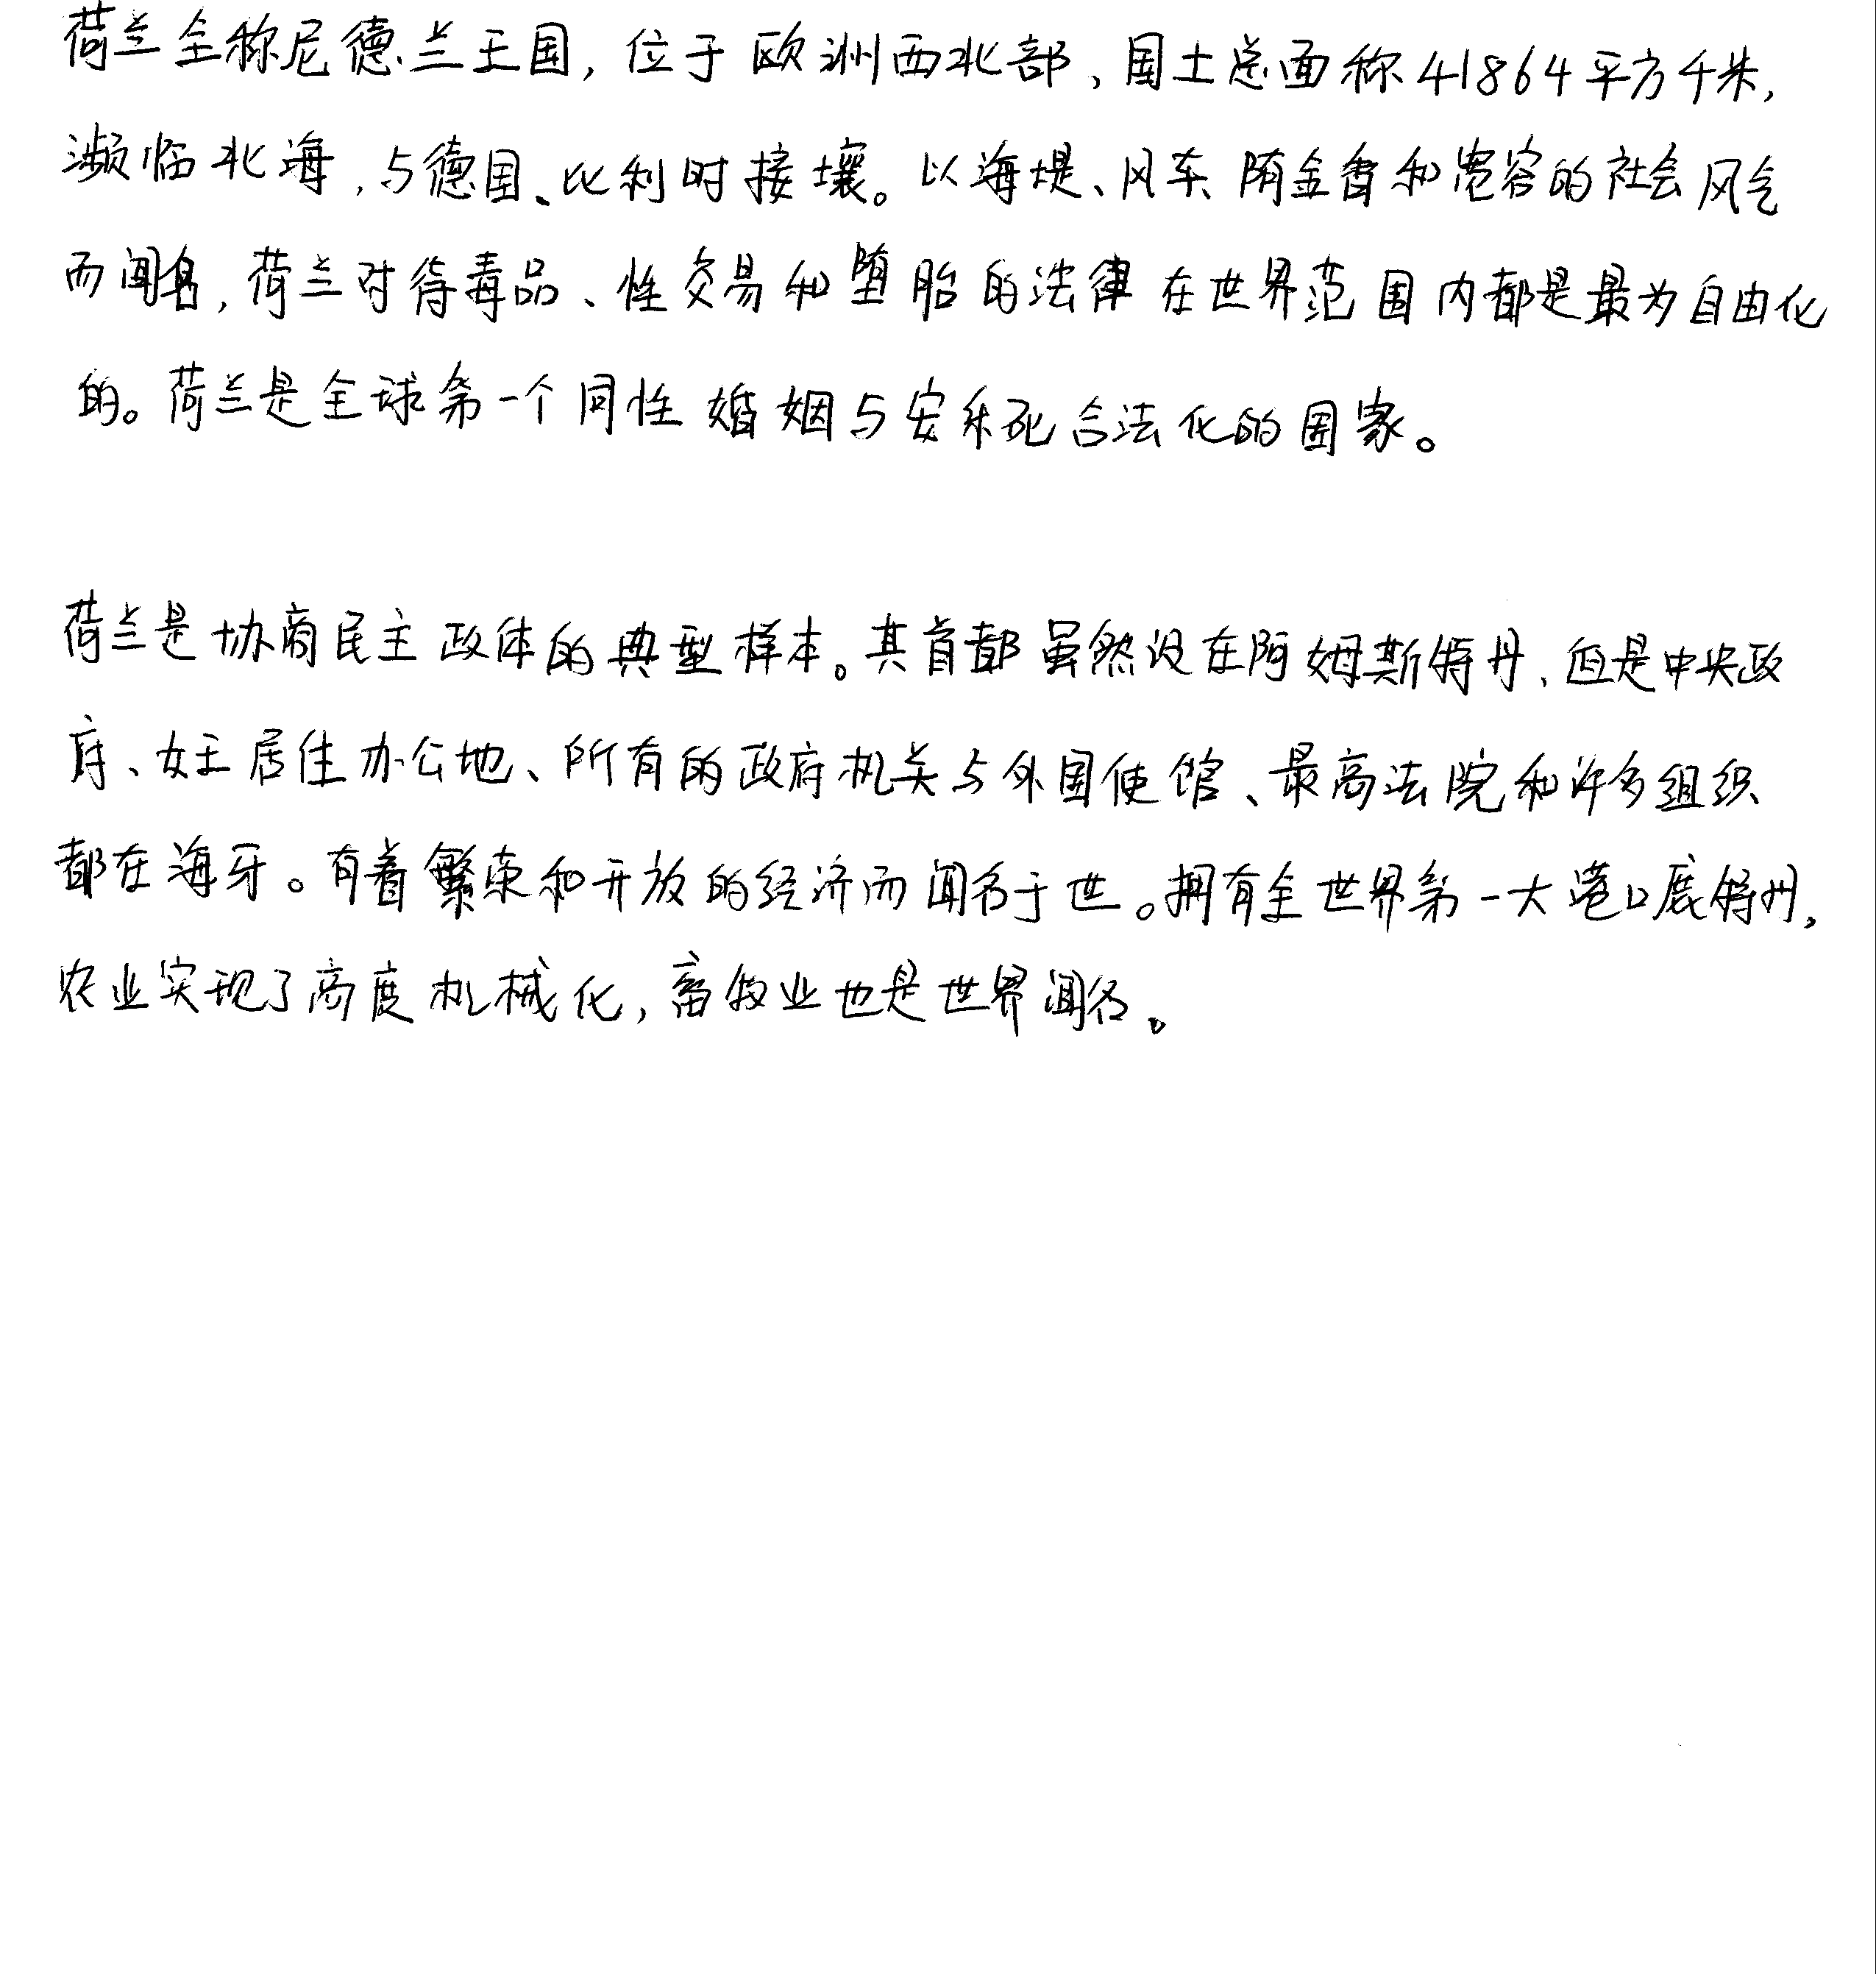 荷兰全称尼德兰王国,位于欧洲西北部、国土总面称41864平方千米,
濒临北海,与德国、比利时接壤。以海堤、风车、郁金香和宽容的社会风气
而闻名,荷兰对待毒品、性交易和堕胎的法律在世界范围内都是最为自由化
的。荷兰是全球第一个同性婚姻与安乐死合法化的国家。
荷兰是协商民主政体的典型样本。其首都虽然设在阿姆斯特丹、但是中央政
府、女王居住办公地、所有的政府机关与外国使馆、最高法院和许多组织
都在海牙。有着繁荣和开放的经济而闻名于世。拥有全世界第一大港口鹿特丹,
农业实现了高度机械化,畜牧业也是世界闻名。